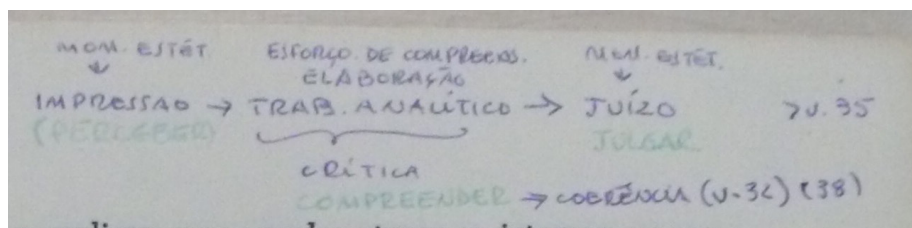 MOM. ESTÉT. ESFORÇO DE COMPREENS. MOM. ESTÉT.
↓ ELABORAÇÃO ↓
IMPRESSÃO → TRAB. ANALÍTICO → JUÍZO >v. 35
(PERCEBER) JULGAR
CRÍTICA
COMPREENDER → COERÊNCIA (v. 32) (38)